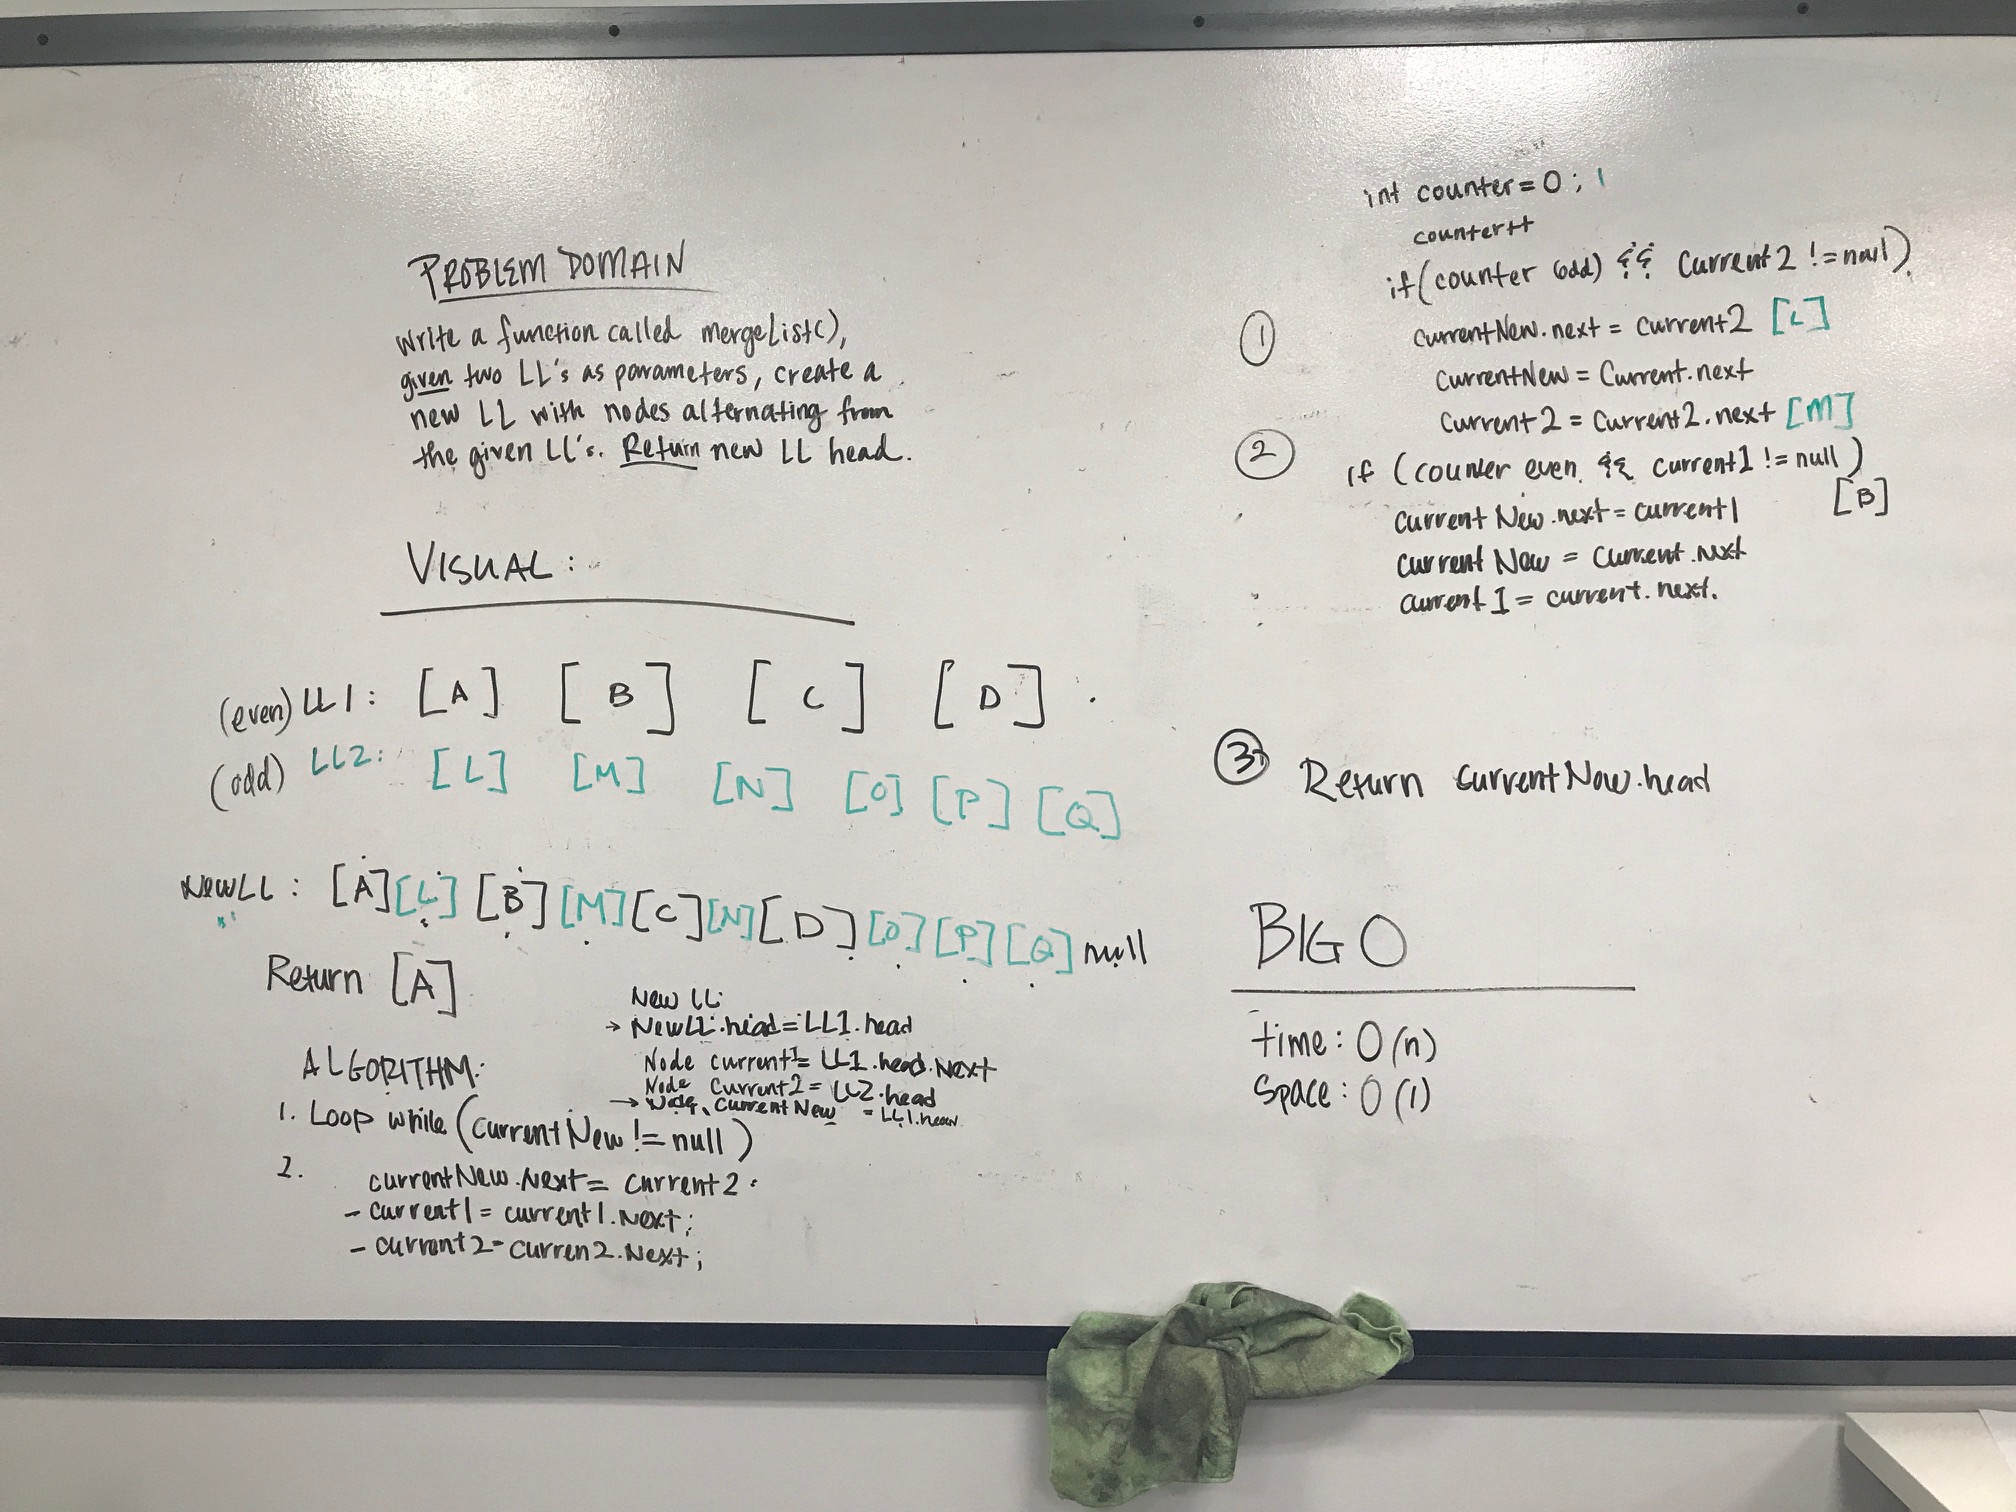 PROBLEM DOMAIN
Write a function called mergeList(),
given two LL's as parameters, create a
new LL with nodes alternating from
the given LL's. Return new LL head.
VISUAL:
(even) LL1: [A] [B] [C] [D]
(odd) LL2: [L] [M] [N] [O] [P] [Q]
NewLL: [A] [L] [B] [M] [C] [N] [D] [O] [P] [Q] null
Return [A]
New LL
→ NewLL.head = LL1.head
Node current1 = LL1.head.Next
Node current2 = LL2.head
→ Node currentNew = LL1.head
ALGORITHM:
1. Loop while (currentNew != null)
2.
currentNew.Next = current2.
- current1 = current1.Next;
- current2 = curren2.Next;
int counter = 0; 1
counter++
if (counter odd) && current2 != null)
① currentNew.next = current2 [L]
currentNew = Current.next
Current2 = Current2.next [M]
② if (counter even && current1 != null)
current New.next = current1 [B]
current New = Current.next
current1 = current.next.
③ Return currentNew.head
BIG O
time: O(n)
Space: O(1)